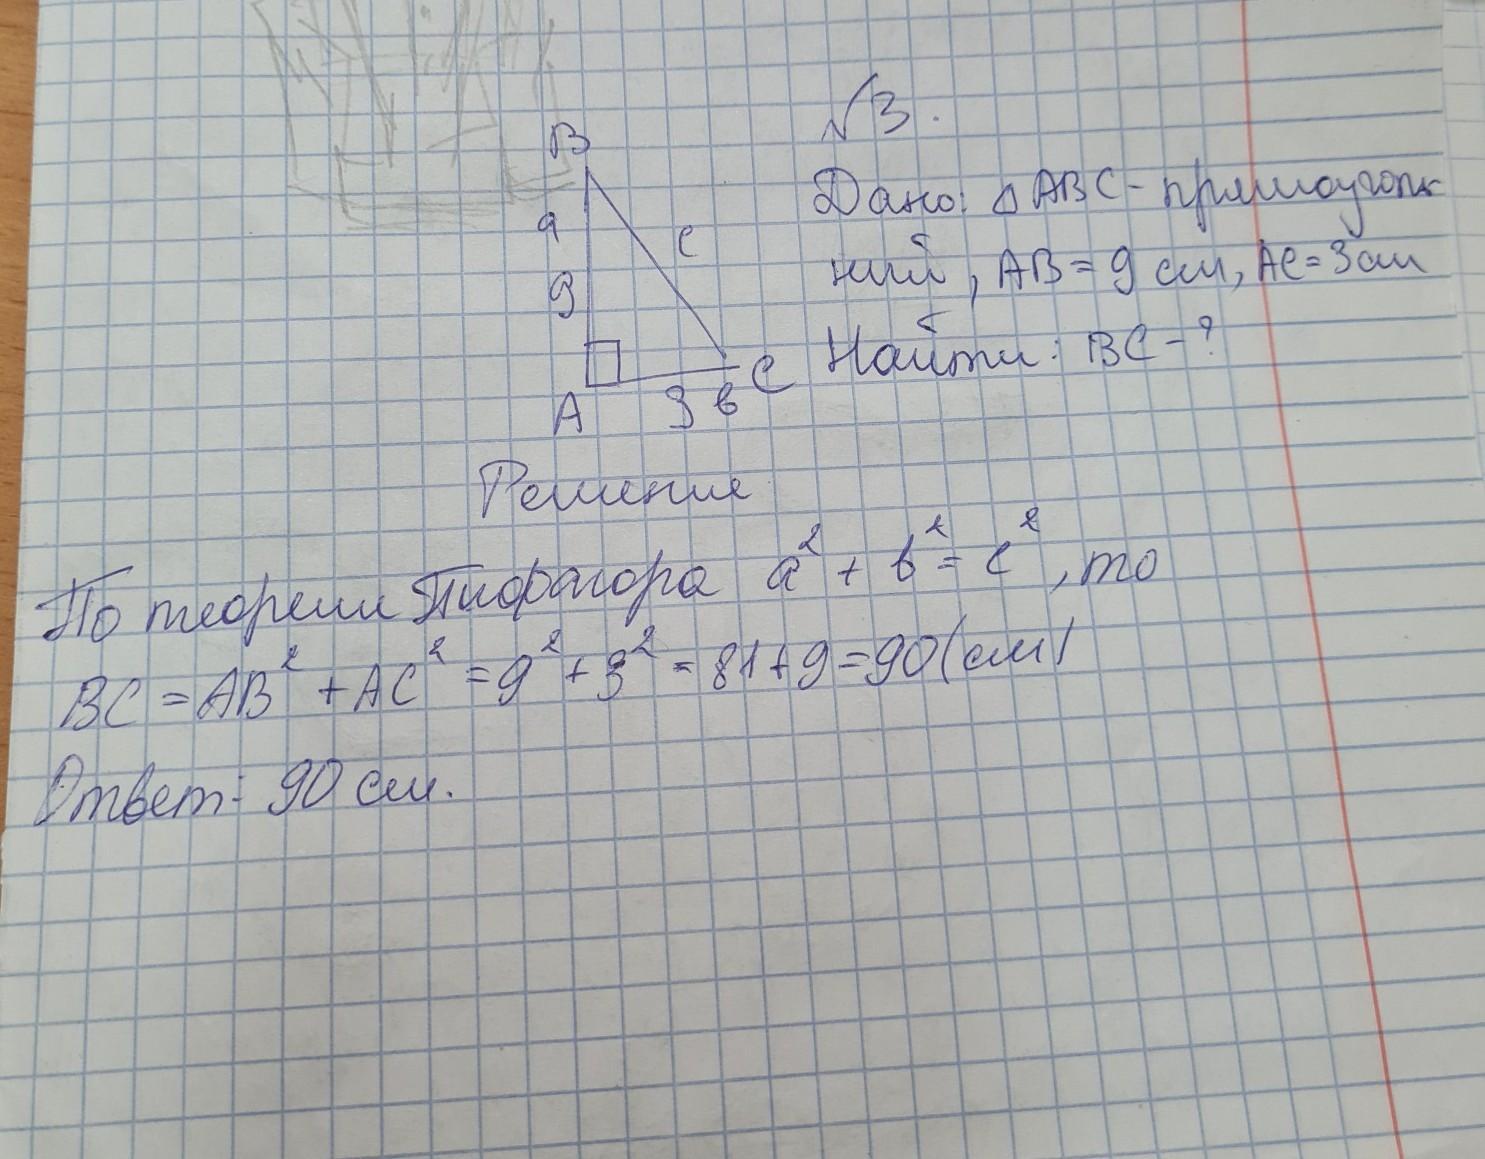 √3.
B
Дано: △ABC - прямоуголь
a
c
ний, AB = 9 см, AC = 3 см
9
Найти: BC - ?
A
3
в
C
Решение
По теореми Пифагора a² + в² = c², то
BC = AB² + AC² = 9² + 3² = 81 + 9 = 90 (см)
Ответ: 90 см.